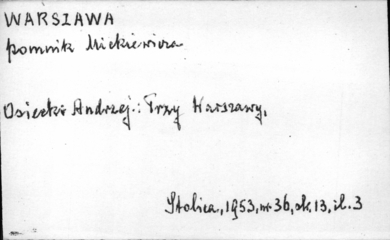 WARSZAWA
pomnik Mickiewicza
Osiecki Andrzej.: Trzy Warszawy.
Stolica, 1953, nr 36, sk. 13, il. 3